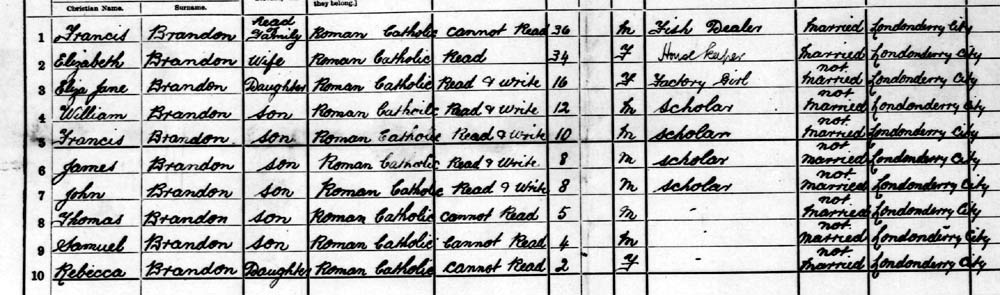 Christian Name. Surname. they belong.]
1 Francis Brandon Head Family Roman Catholic cannot Read 36 M Fish Dealer Married Londonderry City
2 Elizabeth Brandon Wife Roman Catholic Read 34 F House keeper Married Londonderry City
3 Eliza Jane Brandon Daughter Roman Catholic Read & Write 16 F Factory Girl not Married Londonderry City
4 William Brandon son Roman Catholic Read & Write 12 M scholar not Married Londonderry City
5 Francis Brandon son Roman Catholic Read & Write 10 M scholar not Married Londonderry City
6 James Brandon son Roman Catholic Read & Write 8 M scholar not Married Londonderry City
7 John Brandon son Roman Catholic Read & Write 8 M scholar not Married Londonderry City
8 Thomas Brandon son Roman Catholic cannot Read 5 M - not Married Londonderry City
9 Samuel Brandon son Roman Catholic cannot Read 4 M not Married Londonderry City
10 Rebecca Brandon Daughter Roman Catholic cannot Read 2 F not Married Londonderry City